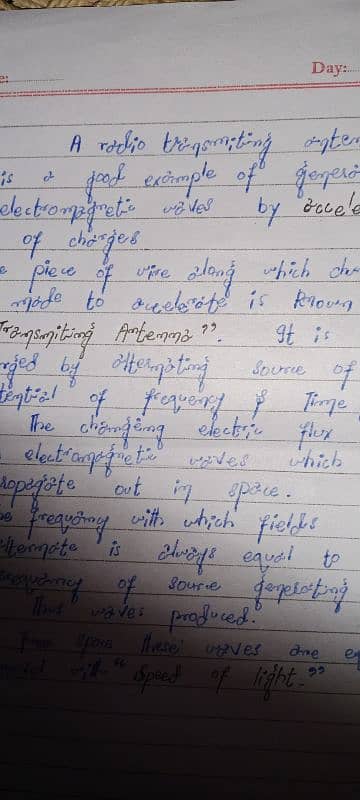 Day:
A radio transmiting anten
is a good example of genera
electromagnetic waves by accele
of charges
piece of wire along which cha
made to accelerate is known
Transmiting Antenna". It is
rged by alternating source of
tential of frequency f Time
The changing electric flux
electromagnetic waves which
ropagate out in space.
e frequency with which fields
alternate is always equal to
frequency of source generating
Thus waves produced.
free space these waves are e
with "speed of light."